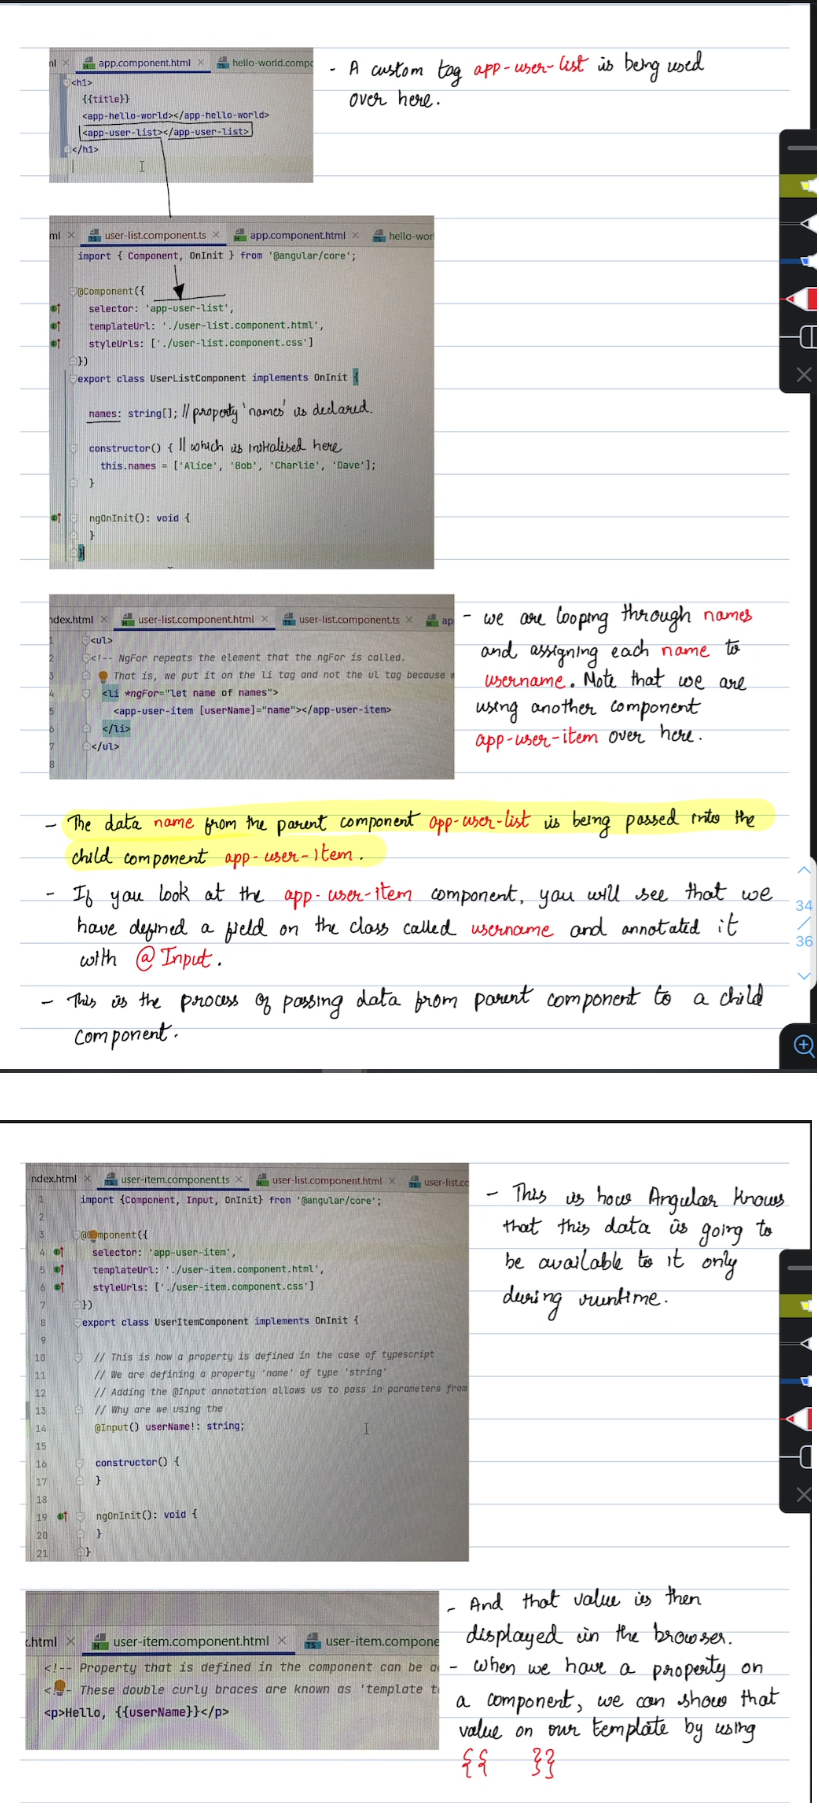 app.component.html × hello-world.comp
<h1>
{{title}}
<app-hello-world></app-hello-world>
<app-user-list></app-user-list>
</h1>
- A custom tag app-user-list is being used
over here.
ml × user-list.component.ts × app.component.html × hello-wor
import { Component, OnInit } from '@angular/core';
@Component({
selector: 'app-user-list',
templateUrl: './user-list.component.html',
styleUrls: ['./user-list.component.css']
})
export class UserListComponent implements OnInit {
names: string[]; // property 'names' is declared.
constructor() { // which is initialised here
this.names = ['Alice', 'Bob', 'Charlie', 'Dave'];
}
ngOnInit(): void {
}
}
ndex.html × user-list.component.html × user-list.component.ts × ap
1 <ul>
2 <!-- NgFor repeats the element that the ngFor is called.
3 That is, we put it on the li tag and not the ul tag because
4 <li *ngFor="let name of names">
5 <app-user-item [userName]="name"></app-user-item>
6 </li>
7 </ul>
8
- we are looping through names
and assigning each name to
username. Note that we are
using another component
app-user-item over here.
- The data name from the parent component app-user-list is being passed into the
child component app-user-item.
- If you look at the app-user-item component, you will see that we
have defined a field on the class called username and annotated it
with @Input.
- This is the process of passing data from parent component to a child
component.
34
/
36
ndex.html × user-item.component.ts × user-list.component.html × user-list.cc
1 import {Component, Input, OnInit} from '@angular/core';
2
3 @Component({
4 selector: 'app-user-item',
5 templateUrl: './user-item.component.html',
6 styleUrls: ['./user-item.component.css']
7 })
8 export class UserItemComponent implements OnInit {
9
10 // This is how a property is defined in the case of typescript
11 // We are defining a property 'name' of type 'string'
12 // Adding the @Input annotation allows us to pass in parameters from
13 // Why are we using the
14 @Input() userName!: string;
15
16 constructor() {
17 }
18
19 ngOnInit(): void {
20 }
21 }
- This is how Angular knows
that this data is going to
be available to it only
during runtime.
.html × user-item.component.html × user-item.compone
<!-- Property that is defined in the component can be a
<!-- These double curly braces are known as 'template t
<p>Hello, {{userName}}</p>
- And that value is then
displayed in the browser.
- When we have a property on
a component, we can show that
value on our template by using
{{ }}